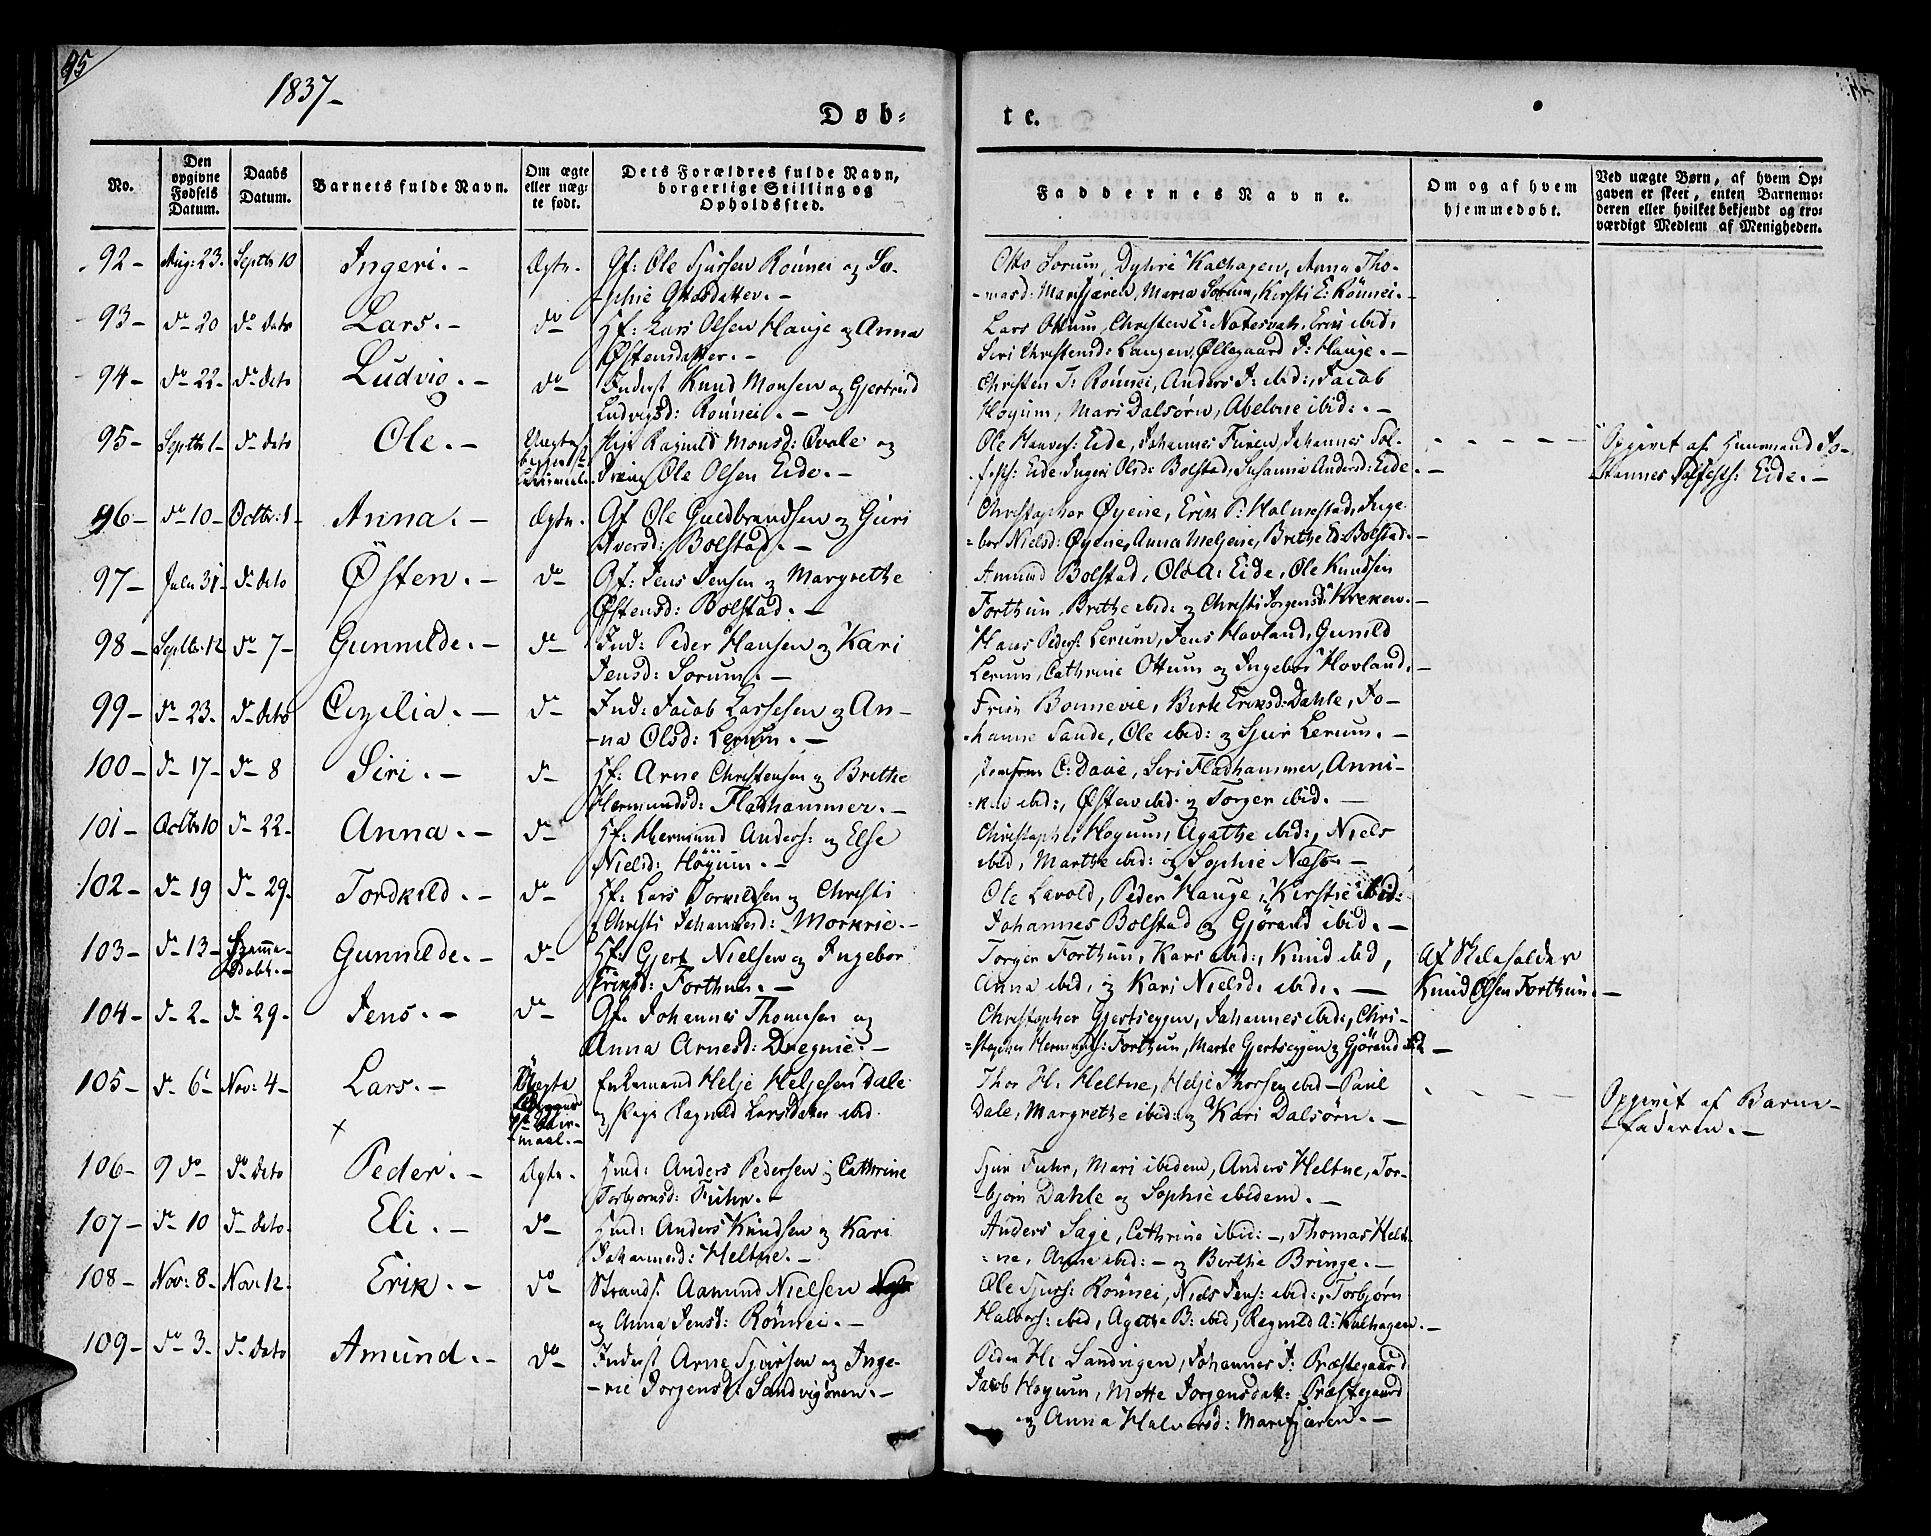 45
1837-
Døb-
te.
No.
Den opgivne Fødsels Datum.
Daabs Datum.
Barnets fulde Navn.
Om ægte eller uæg-te født.
Dets Forældres fulde Navn, borgerlige Stilling og Opholdssted.
Faddernes Navne.
Om og af hvem hjemmedøbt.
Ved uægte Børn, af hvem Op-gaven er skeet, enten Barnemo-deren eller hvilket bekjendt og tro-værdigt Medlem af Menigheden.
92- Aug: 23. Septbr 10 Ingeri.- Ægte. Gf: Ole Sjursen Rönnei og So-
-phie Ottosdatter.-
Otto Sorum, Dyhre Kalhagen, Anna Tho-
-masd: Marifjæren, Maria Sorum, Kirsti E: Rönnei.-
93- do 20 do dato Lars.- do Hf: Lars Olsen Hauge og Anna
Østensdatter.-
Lars Ottum, Christen E: Nalesvah, Erik ibid,
Siri Christensd: Langen, Øllegaard J: Hauge.-
94- do 22- do dato Ludvig.- do Inderst Knud Monsen og Gjertrud
Ludvigsd: Rönnei.-
Christen J: Rönnei, Anders J: ibid:, Jacob
Høyum, Mari Dalsørn, Abelone ibid:.-
95- Septbr 1- do dato Ole.- Uægte Pige Ragnild Monsd: Qvale og
Dreng Ole Olsen Eide.-
Ole Havers: Eide, Johannes Turen, Johannes Tol-
-fesh: Eide Ingeri Olsd: Bolstad, Susanna Andersd: Eide.-
Opgivet af Huusmand Jo-
-hannes Tolfesh: Eide.-
96- do 10- Octbr: 1- Anna.- Ægte. Gf Ole Guldbrandsen og Guri
Iversd: Bolstad.-
Christopher Øyene, Erik P: Halmestad, Inge-
-bor Nielsd: Øyene, Anna Meljene, Brithe Ed: Bolstad.-
97- Julii 31- do dato Østen.- do Gf: Jens Jensen og Margrethe
Østensd: Bolstad.-
Amund Bolstad, Ole A: Eide, Ole Knudsen
Forthun Brithe ibid: og Christi Jorgensd: Kreken.-
98- Septbr: 12 do 7- Gunnilde.- do Ind: Peder Hansen og Kari
Jensd: Sorum.-
Hans Peders: Lerum, Jens Hovland, Gunild
Lerum, Cathrine Ottum og Ingebor Hovland.-
99- do 23. do dato Cezilia.- do Ind: Jacob Larsesen og An-
-na Olsd: Lerum.-
Friis Bonnevie, Birte Eriksd: Dahle, Jo-
-hanne Sande, Ole ibid: og Sjur Lerum.-
100- do 17- do 8 Siri.- do Hf: Arne Christensen og Brithe
Hermundsd: Fladhammer.-
C: Dave, Siri Fladhammer, Anni-
-ken ibid:, Østen ibid: og Torger ibid.-
101- Octbr 10 do 22- Anna.- do Hf: Hermund Anders: og Else
Nielsd: Høyum.-
Christopher Høyum, Agathe ibid:, Niels
ibid, Marthe ibid: og Sophie Næss.-
102- do 19 do 29. Tordkild.- do Hf: Lars Torkildsen og Christi
Christi Johannesd: Morkrie.-
Ole Lavold, Peder Hauge, Kirstie ibid:
Johannes Bolstad og Gjörand ibid.-
103- do 13- Hjemme-
-døbt.- Gunnilde.- do Hf: Gjert Nielsen og Ingebor
Eriksd: Forthun.-
Torger Forthun, Kari ibid:, Knud ibid,
Anna ibid, og Kari Nielsd: ibid.-
Af Skoleholder
Knud Olsen Forthun.-
104- do 2- do 29- Jens.- do Gf. Johannes Thomesen og
Anna Arnesd: Dregnie.-
Christopher Gjertseggen, Johannes ibid:, Chri-
-stopher Hermunds: Forthun, Marte Gjertseggen og Gjörand ibid-
105- do 6 Nov: 4- Lars.- Uægte Enkemand Helje Heljesen Dale
og Pige Ragnild Larsdatter ibid.
Thor H. Heltne, Helje Thorsen ibid- Paul
Dale, Margrethe ibid: og Kari Dalsörn.-
Opgivet af Barne-
-faderen.-
106- 9 do- do dato Peder.- Ægte. Huusmd: Anders Pedersen og Cathrine
Torbjornsd: Fuhr.-
Sjur Fuhr, Mari ibidem, Anders Heltne, Tor-
-bjørn Dahle og Sophie ibidem.-
107- do 10 do dato- Eli.- do Huusmd: Anders Knudsen og Kari
Johannesd: Heltne.-
Anders Sage, Cathrine ibid:-, Thomas Helt-
-ne, Anna ibid:- og Berthe Bringe.-
108- Nov: 8- Nov: 12. Erik.- do Strands: Aamund Nielsen
og Anna Jensd: Rönnei.-
Ole Sjurs: Rönnei, Niels Jens: ibid:, Torbjørn
Halvors: ibid, Agathe B: ibid, Regnild A: Kalhagen.-
109- do 3- do dato Amund.- do Inderst Arne Sjursen og Inge-
-rie Jorgensd: Sandvigören.-
Peder H: Sandvigen, Johannes J: Præstegaard
Jacob Høyum, Mette Jorgensdatt: Præstegaard
og Anna Halvorsd: Marifjæren.-